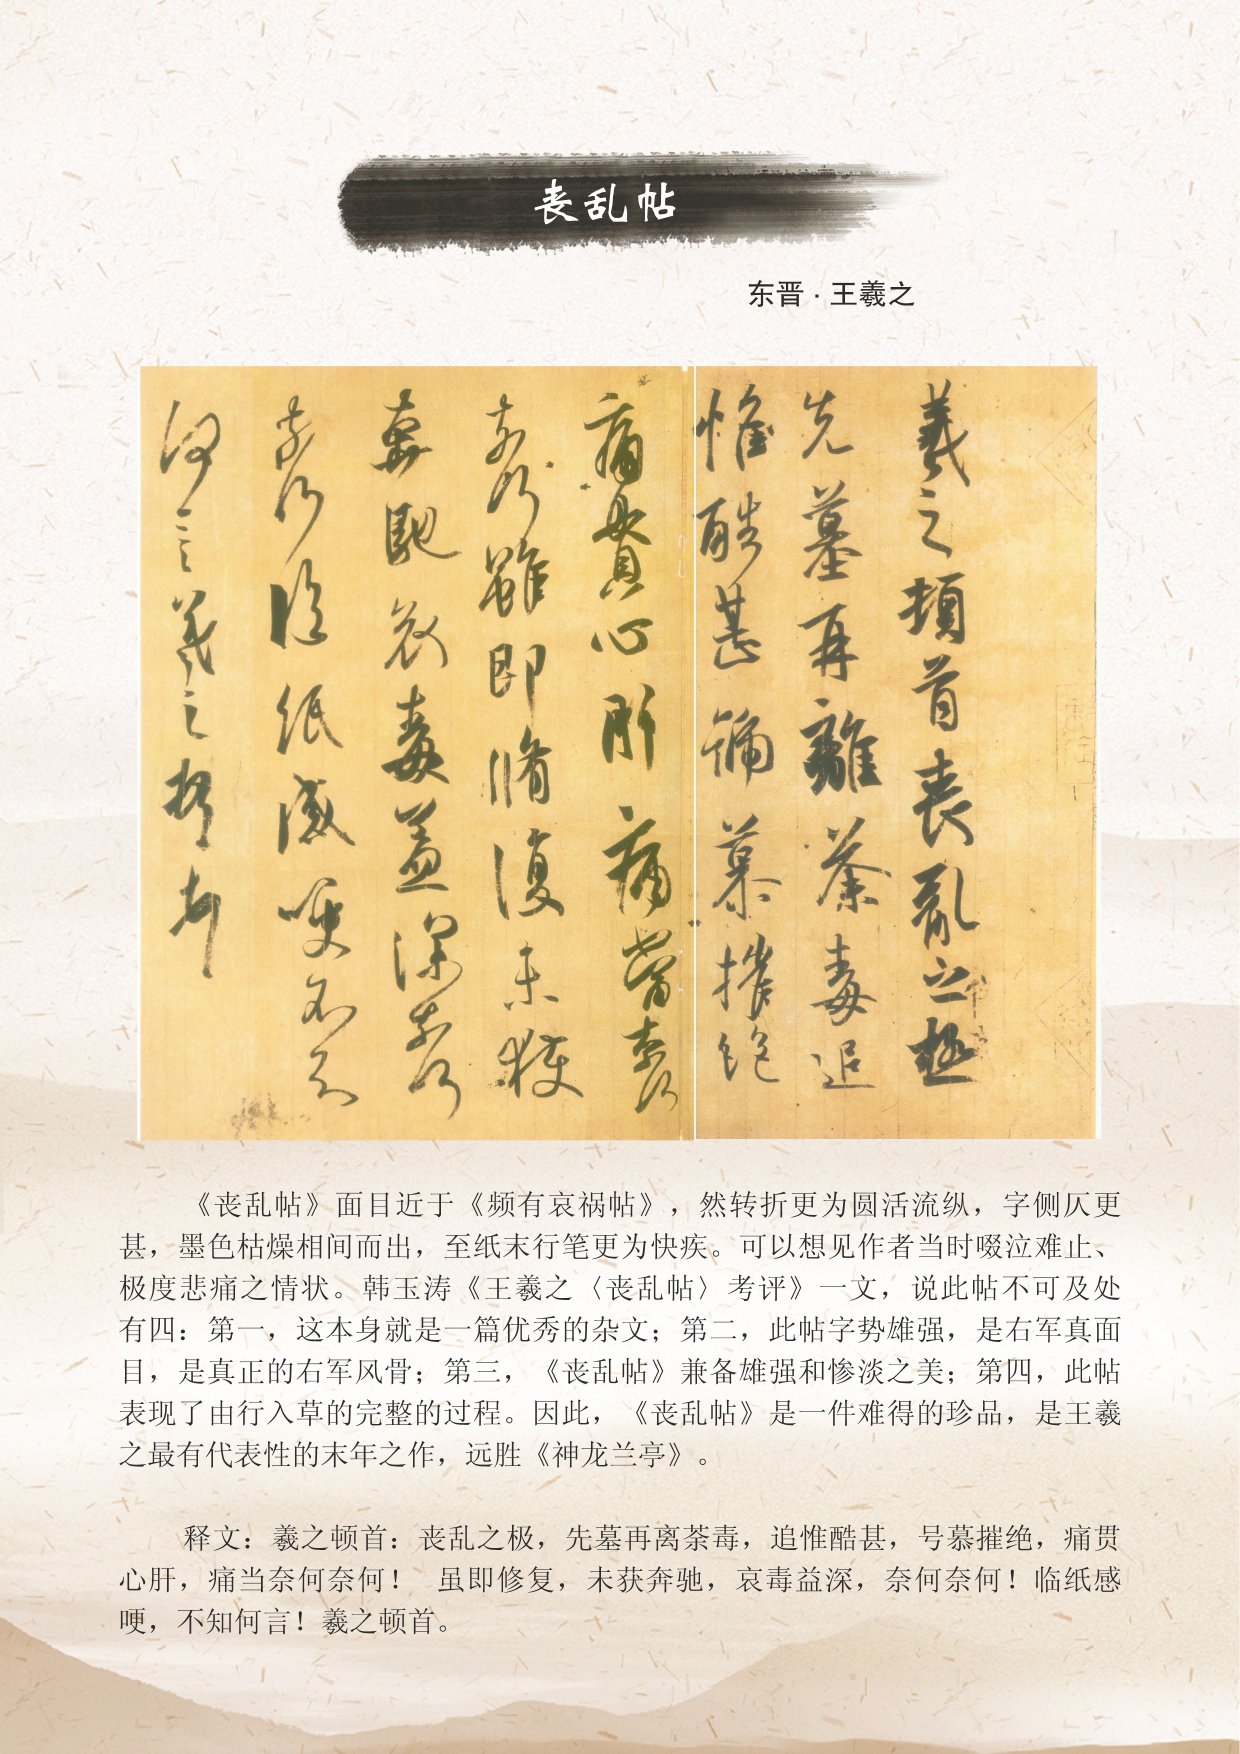 丧乱帖
东晋·王羲之
羲之頓首喪亂之極
先墓再離荼毒追
惟酷甚號慕摧絶
痛貫心肝痛當奈何
奈何雖即脩復未獲
奔馳哀毒益深奈何
奈何臨紙感哽不知
何言羲之頓首
《丧乱帖》面目近于《频有哀祸帖》，然转折更为圆活流纵，字侧仄更
甚，墨色枯燥相间而出，至纸末行笔更为快疾。可以想见作者当时啜泣难止、
极度悲痛之情状。韩玉涛《王羲之〈丧乱帖〉考评》一文，说此帖不可及处
有四：第一，这本身就是一篇优秀的杂文；第二，此帖字势雄强，是右军真面
目，是真正的右军风骨；第三，《丧乱帖》兼备雄强和惨淡之美；第四，此帖
表现了由行入草的完整的过程。因此，《丧乱帖》是一件难得的珍品，是王羲
之最有代表性的末年之作，远胜《神龙兰亭》。
释文：羲之顿首：丧乱之极，先墓再离荼毒，追惟酷甚，号慕摧绝，痛贯
心肝，痛当奈何奈何！ 虽即修复，未获奔驰，哀毒益深，奈何奈何！临纸感
哽，不知何言！羲之顿首。